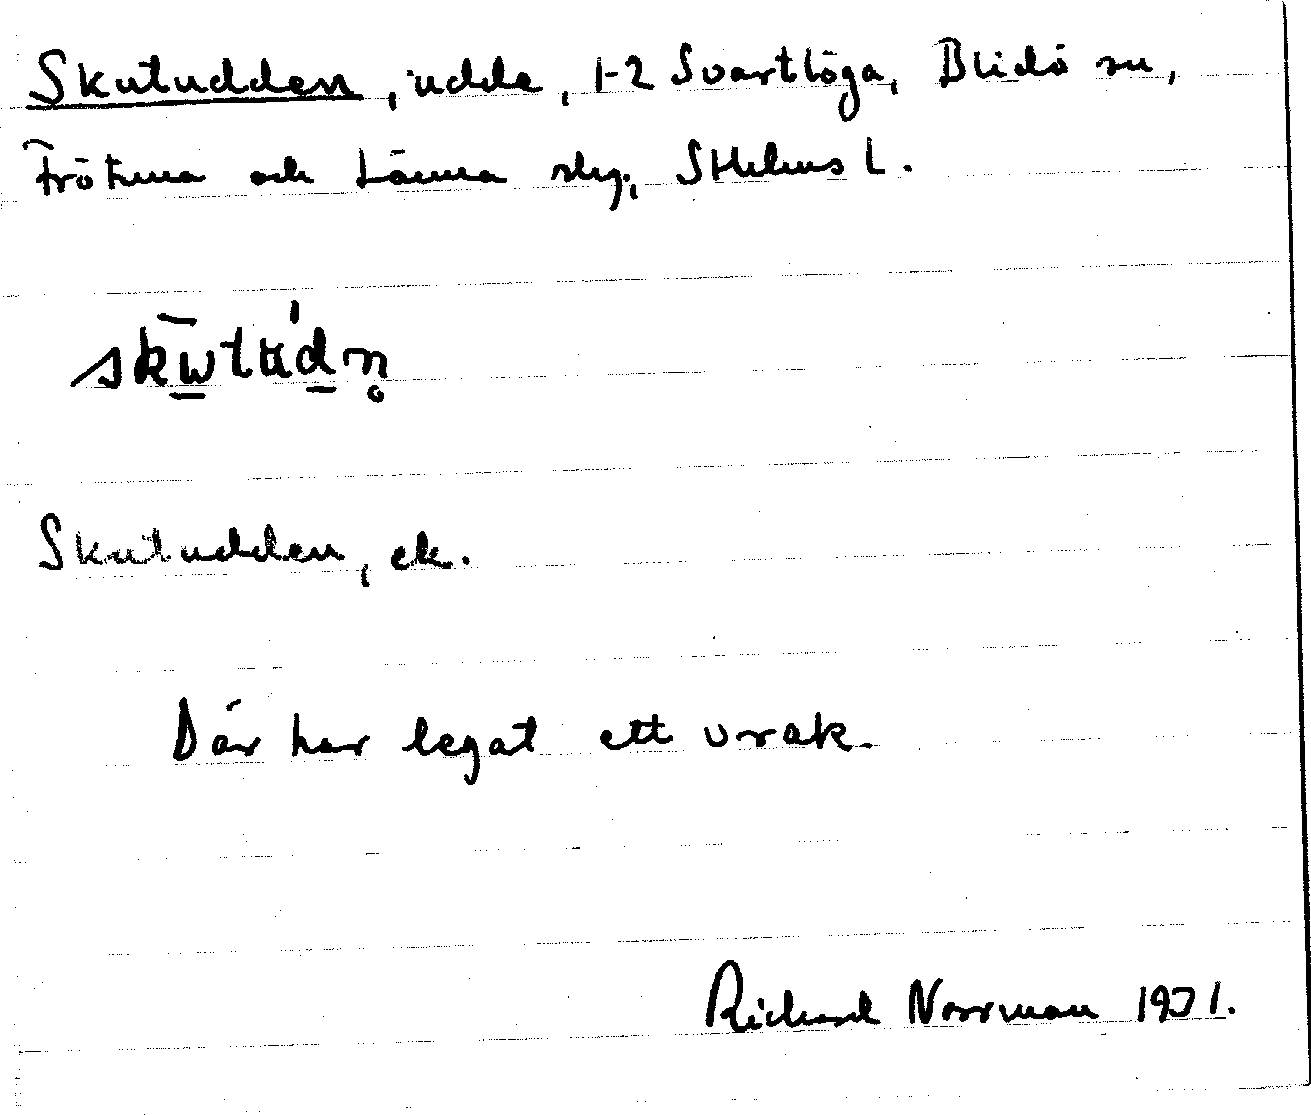 Skutudden, udde, 1-2 Svartlöga, Blidö sn,
Frötuna och Länna skg, Sthlms l.
skw̄tu̇dn̥
Skutudden, ek.
Där har legat ett vrak.
Richard Norrman 1971.